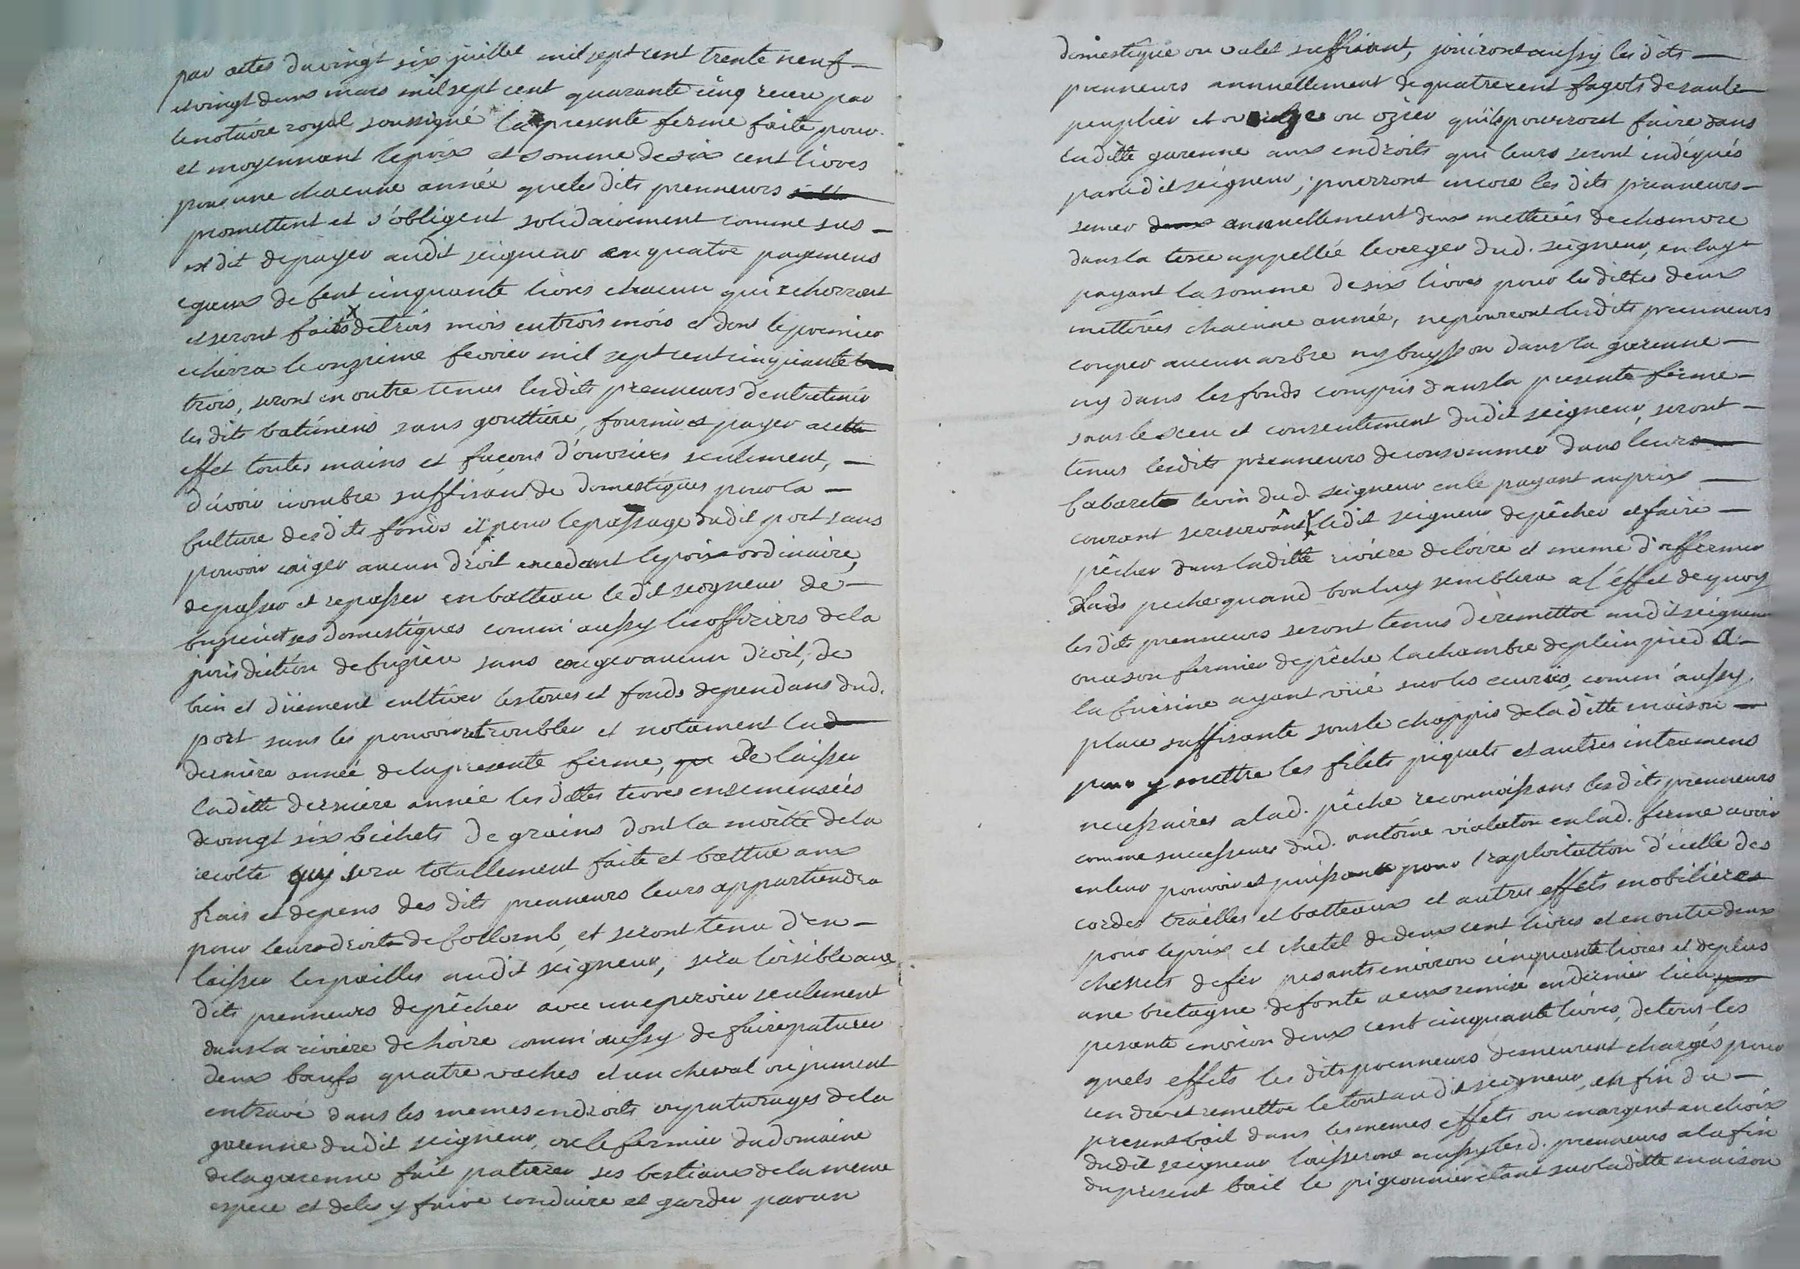 par actes du vingt six juillet mil sept cent trente neuf
et vingt deux mars mil sept cent quarante cinq receu par
le notaire royal soussigné la presente ferme faite pour
et moyennant le prix et somme de six cent livres
pour une chacune année que les dits prenneurs
promettent et s'obligent solidairement comme sus
est dit de payer audit seigneur en quatre payemens
egaux de cent cinquante livres chacun qui echorront
et seront faits de trois mois en trois mois et dont le premier
echerra le onzieme fevrier mil sept cent cinquante
trois, seront en outre tenus lesdits prenneurs d'entretenir
les dits batimens sans gouttiere, fournir et payer a cette
effet toutes mains et façons d'ouvriers seulement,
d'avoir nombre suffisant de domestiques pour la
culture desdits fonds et pour le passage dudit port sans
pouvoir exiger aucun droit excedant le prix ordinaire,
de passer et repasser en batteau le dit seigneur de
et ses domestiques comm'aussy les officiers de la
jurisdiction de sans exiger aucun droit, de
bien et düement cultiver les terres et fonds dependans dud.
port sans les pouvoir troubler et notament lad
derniere année de la presente ferme, de laisser
laditte derniere année les dittes terres ensemensées
de vingt six bichets de grains dont la moitié de la
recolte qui sera totallement faite et battue aux
frais et depens des dits prenneurs leurs appartiendra
pour leurs droits de et seront tenu d'en
laisser les pailles audit seigneur, sera loisible aux
dits prenneurs de pêcher avec un epervier seulement
dans la riviere de Loire comm'aussy de faire paturer
deux bœufs quatre vaches et un cheval ou jument
entravé dans les memes endroits ou paturages de la
garenne dudit seigneur ou le fermier du domaine
de la garenne fait paturer ses bestiaux de la meme
espece et de les y faire conduire et garder par un
domestique ou valet suffisant, joüiront aussy les dits
prenneurs annuellement de quatre cent fagots de saule
peuplier et ou ozier qu'ils pourront faire dans
laditte garenne aux endroits qui leurs seront indiqués
par le dit seigneur; pourront encore les dits prenneurs
semer annuellement deux metterées de chanvre
dans la terre appellée le verger dud. seigneur, en luy
payant la somme de six livres pour les dittes deux
metterées chacune année, ne pourront lesdits prenneurs
couper aucun arbre ny buysson dans la garenne
ny dans les fonds compris dans la presente ferme
sans le sceu et consentement dudit seigneur, seront
tenus lesdits prenneurs de consommer dans leurs
cabarets le vin dud. seigneur en le payant au prix
courant se reservant le dit seigneur de pêcher et faire
pêcher dans laditte riviere de Loire et meme d'affermer
lad. peche quand bon luy semblera a l'effet de quoy
les dits prenneurs seront tenus de remettre audit seigneur
ou a son fermier de pêche la chambre de plein pied a
la cuisine ayant vüe sur les ecuries, comm'aussy
place suffisante sous le chappis de la ditte maison
pour y mettre les filets piquets et autres intrumens
necessaires a lad. pêche reconnoissans les dits prenneurs
comme successeurs dud. antoine en lad. ferme avoir
en leur pouvoir et puissance pour l'exploitation d'icelle des
cordes trailles et batteaux et autres effets mobiliers
pour le prix et chetel de deux cent livres et en outre deux
chenets de fer pesants environ cinquante livres et de plus
une bretagne de fonte a eux remise en dernier lieu
pesante environ deux cent cinquante livres, de tous les
quels effets les dits prenneurs demeurent chargés pour
rendre et remettre le tout audit seigneur en fin du
present bail dans les memes effets ou en argent au choix
dudit seigneur laisseront aussy lesd. prenneurs a la fin
du present bail le pigeonnier etant sur laditte maison